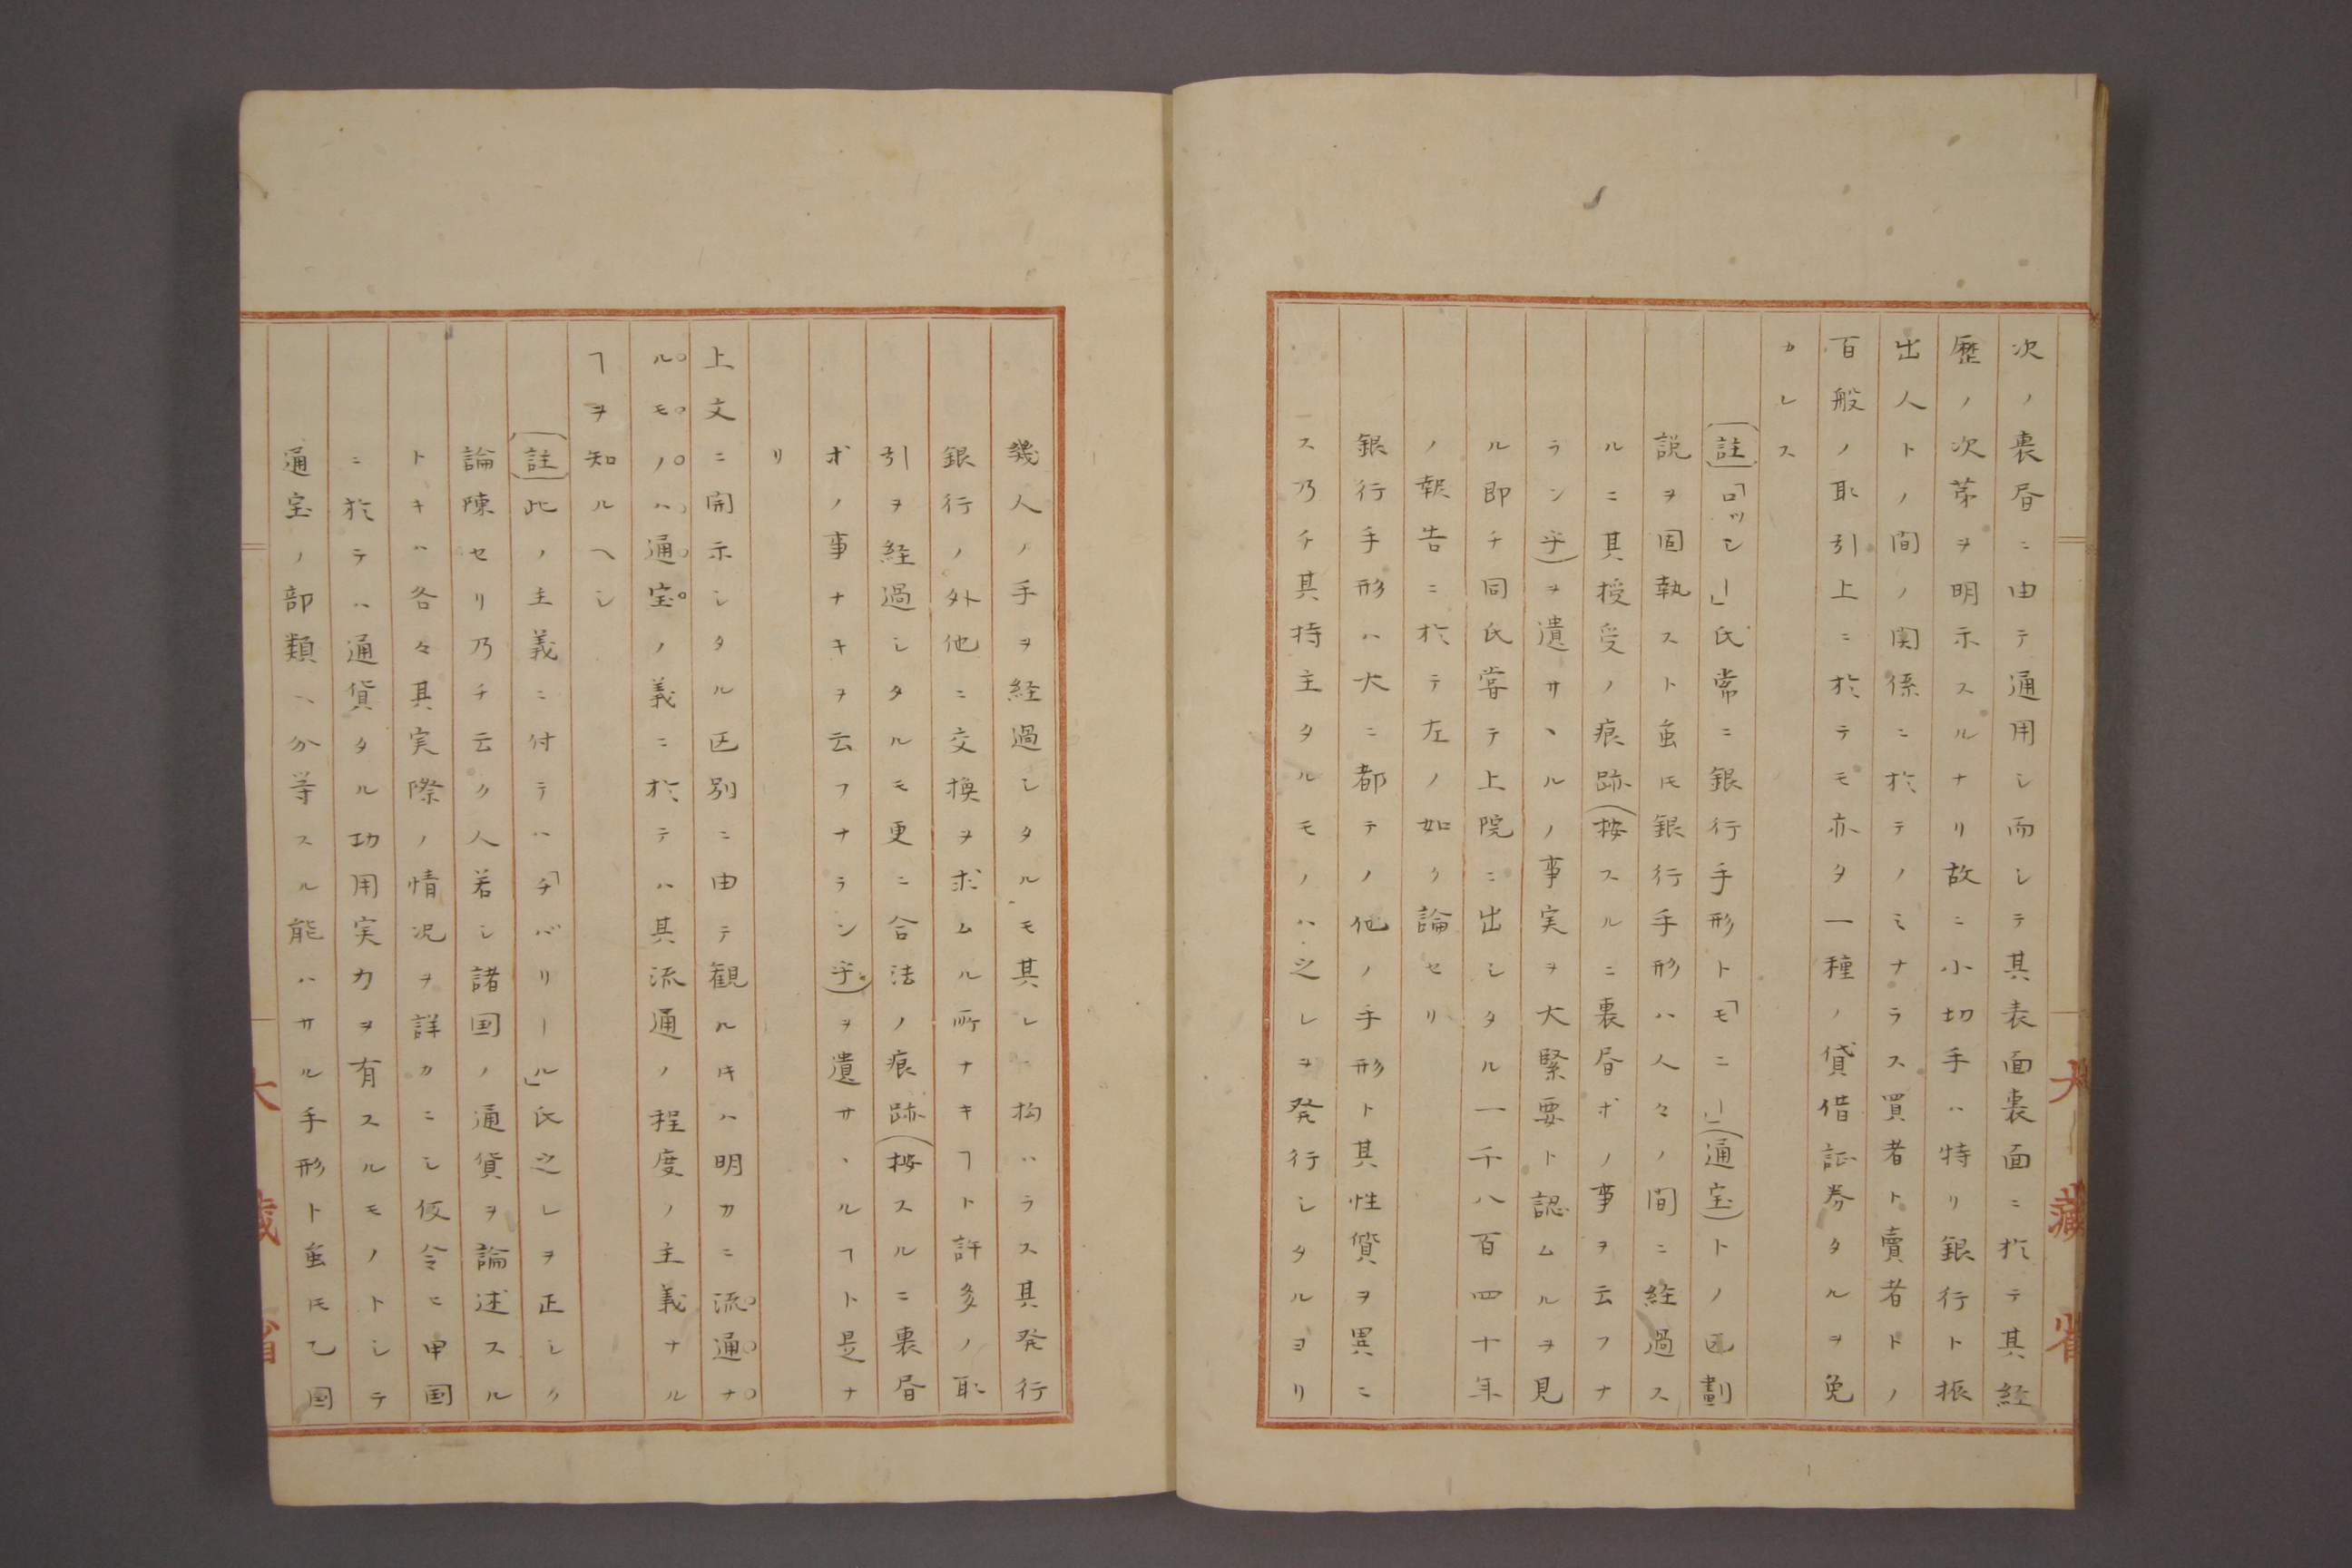 次ノ裏书ニ由テ通用シ而シテ其表面裏面ニ於テ其経
歴ノ次第ヲ明示スルナリ故ニ小切手ハ特リ銀行ト振
出人トノ間ノ関係ニ於テノミナラス買者ト賣者トノ
百般ノ取引上ニ於テモ亦タ一種ノ貸借証券タルヲ免
カレス
(註)「ロッシー」氏常ニ銀行手形ト「モニー」(通宝)トノ区劃
説ヲ固執スト虽𪜈銀行手形ハ人々ノ間ニ経過ス
ルニ其授受ノ痕跡(按スルニ裏书ホノ事ヲ云フナ
ラン乎)ヲ遺サヽルノ事実ヲ大緊要ト認ムルヲ見
ル即チ同氏甞テ上院ニ出シタル一千八百四十年
ノ報告ニ於テ左ノ如ク論セリ
銀行手形ハ大ニ都テノ他ノ手形ト其性質ヲ異ニ
ス乃チ其持主タルモノハ之レヲ発行シタルヨリ
幾人ノ手ヲ経過シタルモ其レニ拘ハラス其発行
銀行ノ外他ニ交換ヲ求ムル所ナキヿト許多ノ取
引ヲ経過シタルモ更ニ合法ノ痕跡(按スルニ裏书
ホノ事ナキヲ云フナラン乎)ヲ遺サヽルヿト是ナ
リ
上文ニ開示シタル区別ニ由テ観ルキハ明カニ流通ナ
ルモノハ通宝ノ義ニ於テハ其流通ノ程度ノ主義ナル
ヿヲ知ルヘシ
(註)此ノ主義ニ付テハ「チバリール」氏之レヲ正シク
論陳セリ乃チ云ク人若シ諸国ノ通貨ヲ論述スル
トキハ各々其実際ノ情况ヲ詳カニシ仮令ヒ甲国
ニ於テハ通貨タル功用実力ヲ有スルモノトシテ
通宝ノ部類ヘ分等スル能ハサル手形ト虽𪜈乙国
大藏省
大藏省